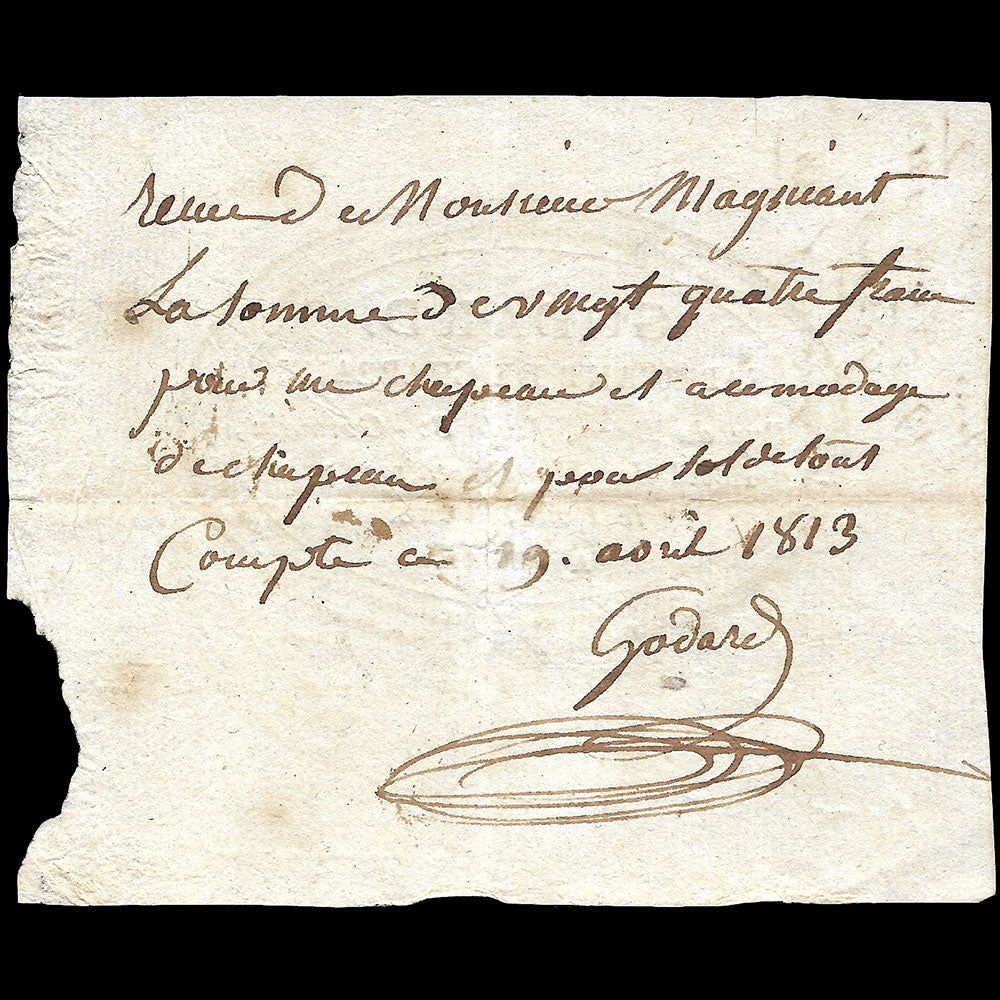 recue de Monsieur Magniant
La somme de vingt quatre franc
pour un chapeau et acomodage
de chapeau et pour solde tout
Compte ce 19. avril 1813
Godard